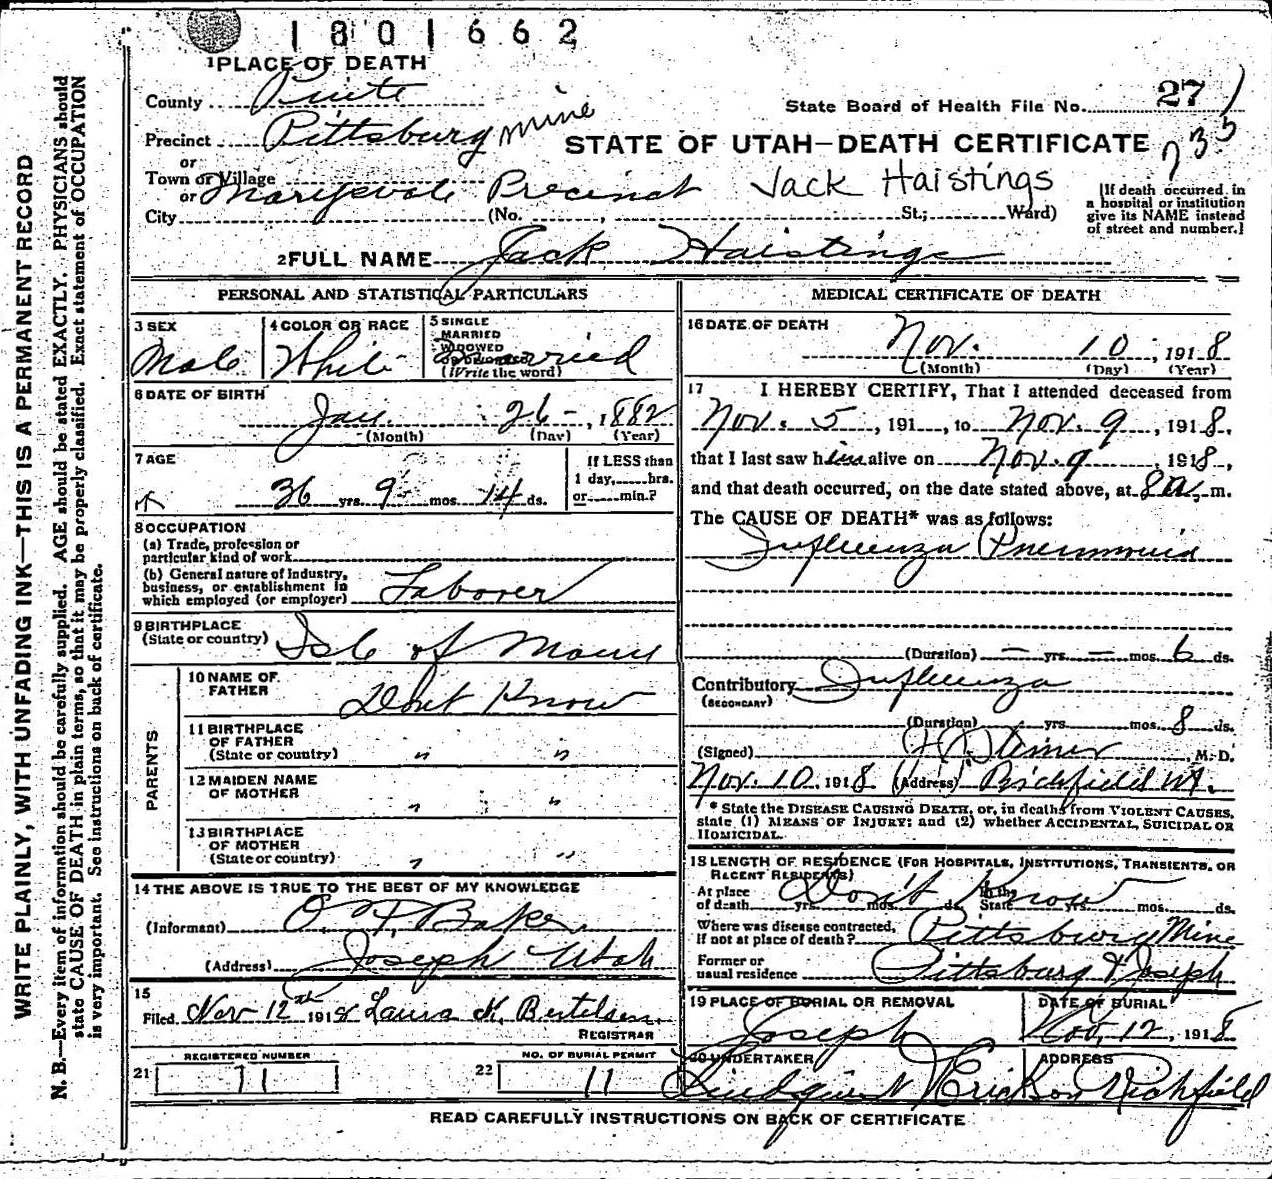 1801662
1 PLACE OF DEATH
County Piute
State Board of Health File No. 27
Precinct Pittsburg mine
735
STATE OF UTAH—DEATH CERTIFICATE
or
Town or Village
or Marysvale Precinct Jack Haistings
City (No. , St.; Ward)
[If death occurred in
a hospital or institution
give its NAME instead
of street and number.]
2 FULL NAME Jack Haistings
PERSONAL AND STATISTICAL PARTICULARS
3 SEX
Male
4 COLOR OR RACE
White
5 SINGLE
MARRIED
WIDOWED
OR DIVORCED
Married
(Write the word)
6 DATE OF BIRTH
Jan. 26-, 1882
(Month) (Day) (Year)
7 AGE
36 yrs. 9 mos. 14 ds.
If LESS than
1 day, hrs.
or min.?
8 OCCUPATION
(a) Trade, profession or
particular kind of work
(b) General nature of industry,
business, or establishment in
which employed (or employer) Laborer
9 BIRTHPLACE
(State or country) Isle of Mann
PARENTS
10 NAME OF
FATHER
Dont Know
11 BIRTHPLACE
OF FATHER
(State or country) " "
12 MAIDEN NAME
OF MOTHER " "
13 BIRTHPLACE
OF MOTHER
(State or country) " "
14 THE ABOVE IS TRUE TO THE BEST OF MY KNOWLEDGE
(Informant) O. T. Baker
(Address) Joseph Utah
15
Filed Nov 12th 1918 Laura K. Bertelsen
REGISTRAR
REGISTERED NUMBER
21 11
NO. OF BURIAL PERMIT
22 11
MEDICAL CERTIFICATE OF DEATH
16 DATE OF DEATH
Nov. 10, 1918
(Month) (Day) (Year)
17 I HEREBY CERTIFY, That I attended deceased from
Nov. 5, 191 , to Nov. 9, 1918,
that I last saw him alive on Nov. 9, 1918,
and that death occurred, on the date stated above, at 8 a. m.
The CAUSE OF DEATH* was as follows:
Influenza Pneumonia
(Duration) – yrs. – mos. 6 ds.
Contributory Influenza
(SECONDARY)
(Duration) yrs. mos. 8 ds.
(Signed) M. D.
Nov. 10, 1918 (Address) Richfield Ut.
* State the DISEASE CAUSING DEATH, or, in deaths from VIOLENT CAUSES,
state (1) MEANS OF INJURY; and (2) whether ACCIDENTAL, SUICIDAL OR
HOMICIDAL.
18 LENGTH OF RESIDENCE (FOR HOSPITALS, INSTITUTIONS, TRANSIENTS, OR
RECENT RESIDENTS)
At place In the
of death yrs. mos. ds. State yrs. mos. ds.
Don't Know
Where was disease contracted,
If not at place of death? Pittsburg Mine
Former or
usual residence Pittsburg & Joseph
19 PLACE OF BURIAL OR REMOVAL
Joseph
DATE OF BURIAL
Nov. 12, 1918
20 UNDERTAKER
Lindquist & Erickson
ADDRESS
Richfield
READ CAREFULLY INSTRUCTIONS ON BACK OF CERTIFICATE
WRITE PLAINLY, WITH UNFADING INK—THIS IS A PERMANENT RECORD
N. B.—Every item of information should be carefully supplied. AGE should be stated EXACTLY. PHYSICIANS should
state CAUSE OF DEATH in plain terms, so that it may be properly classified. Exact statement of OCCUPATION
is very important. See instructions on back of certificate.